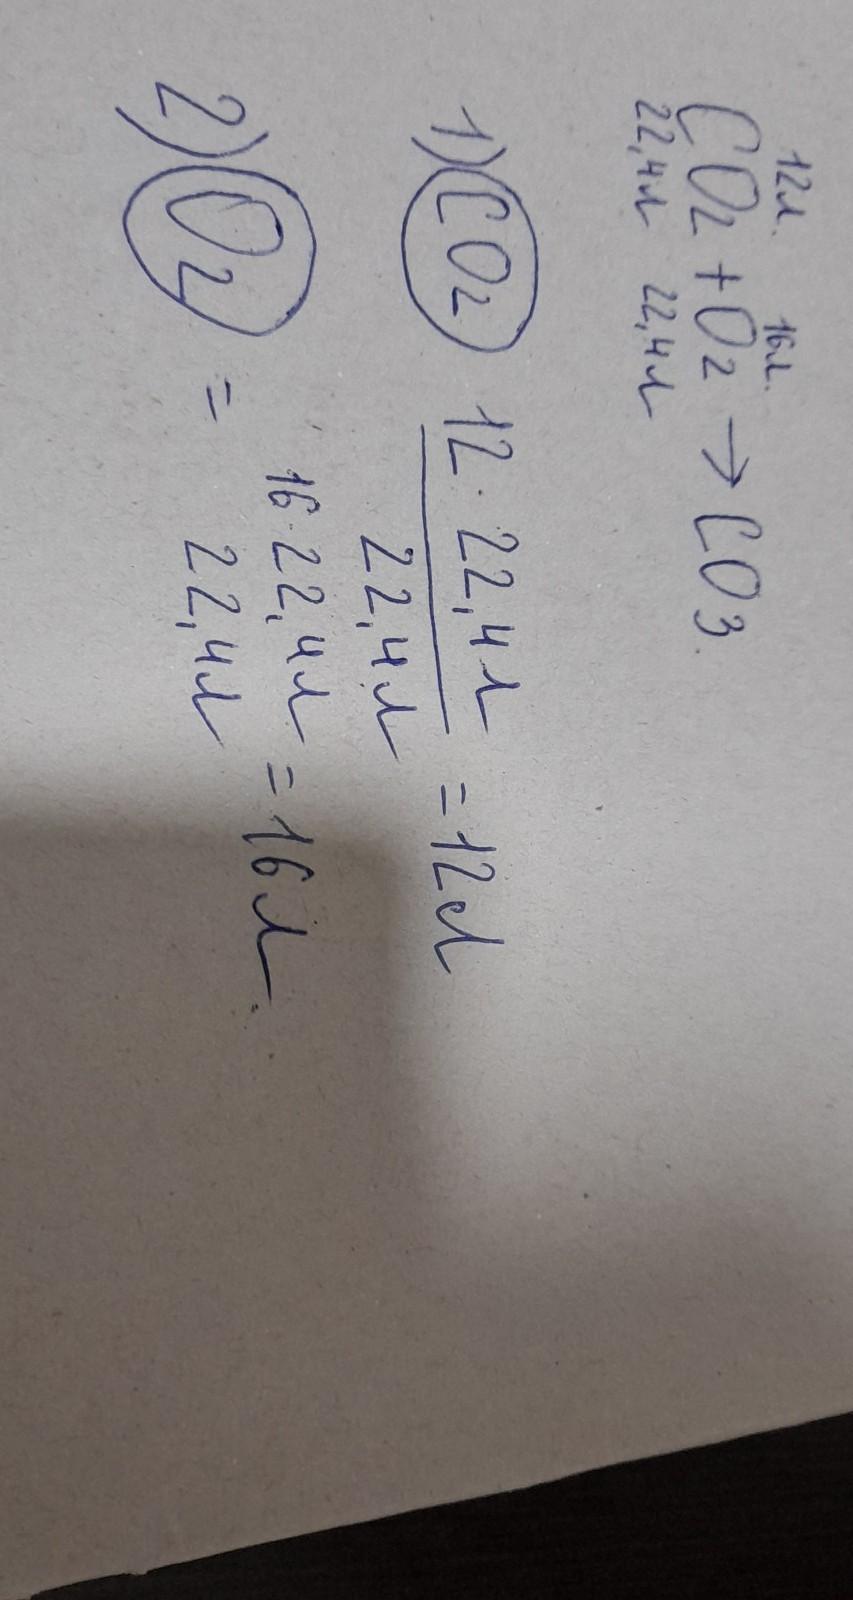 12л. 16л.
CO2 + O2 → CO3.
22,4л 22,4л
1) CO2 12·22,4л
22,4л = 12л
2) O2 = 16·22,4л
22,4л = 16л.